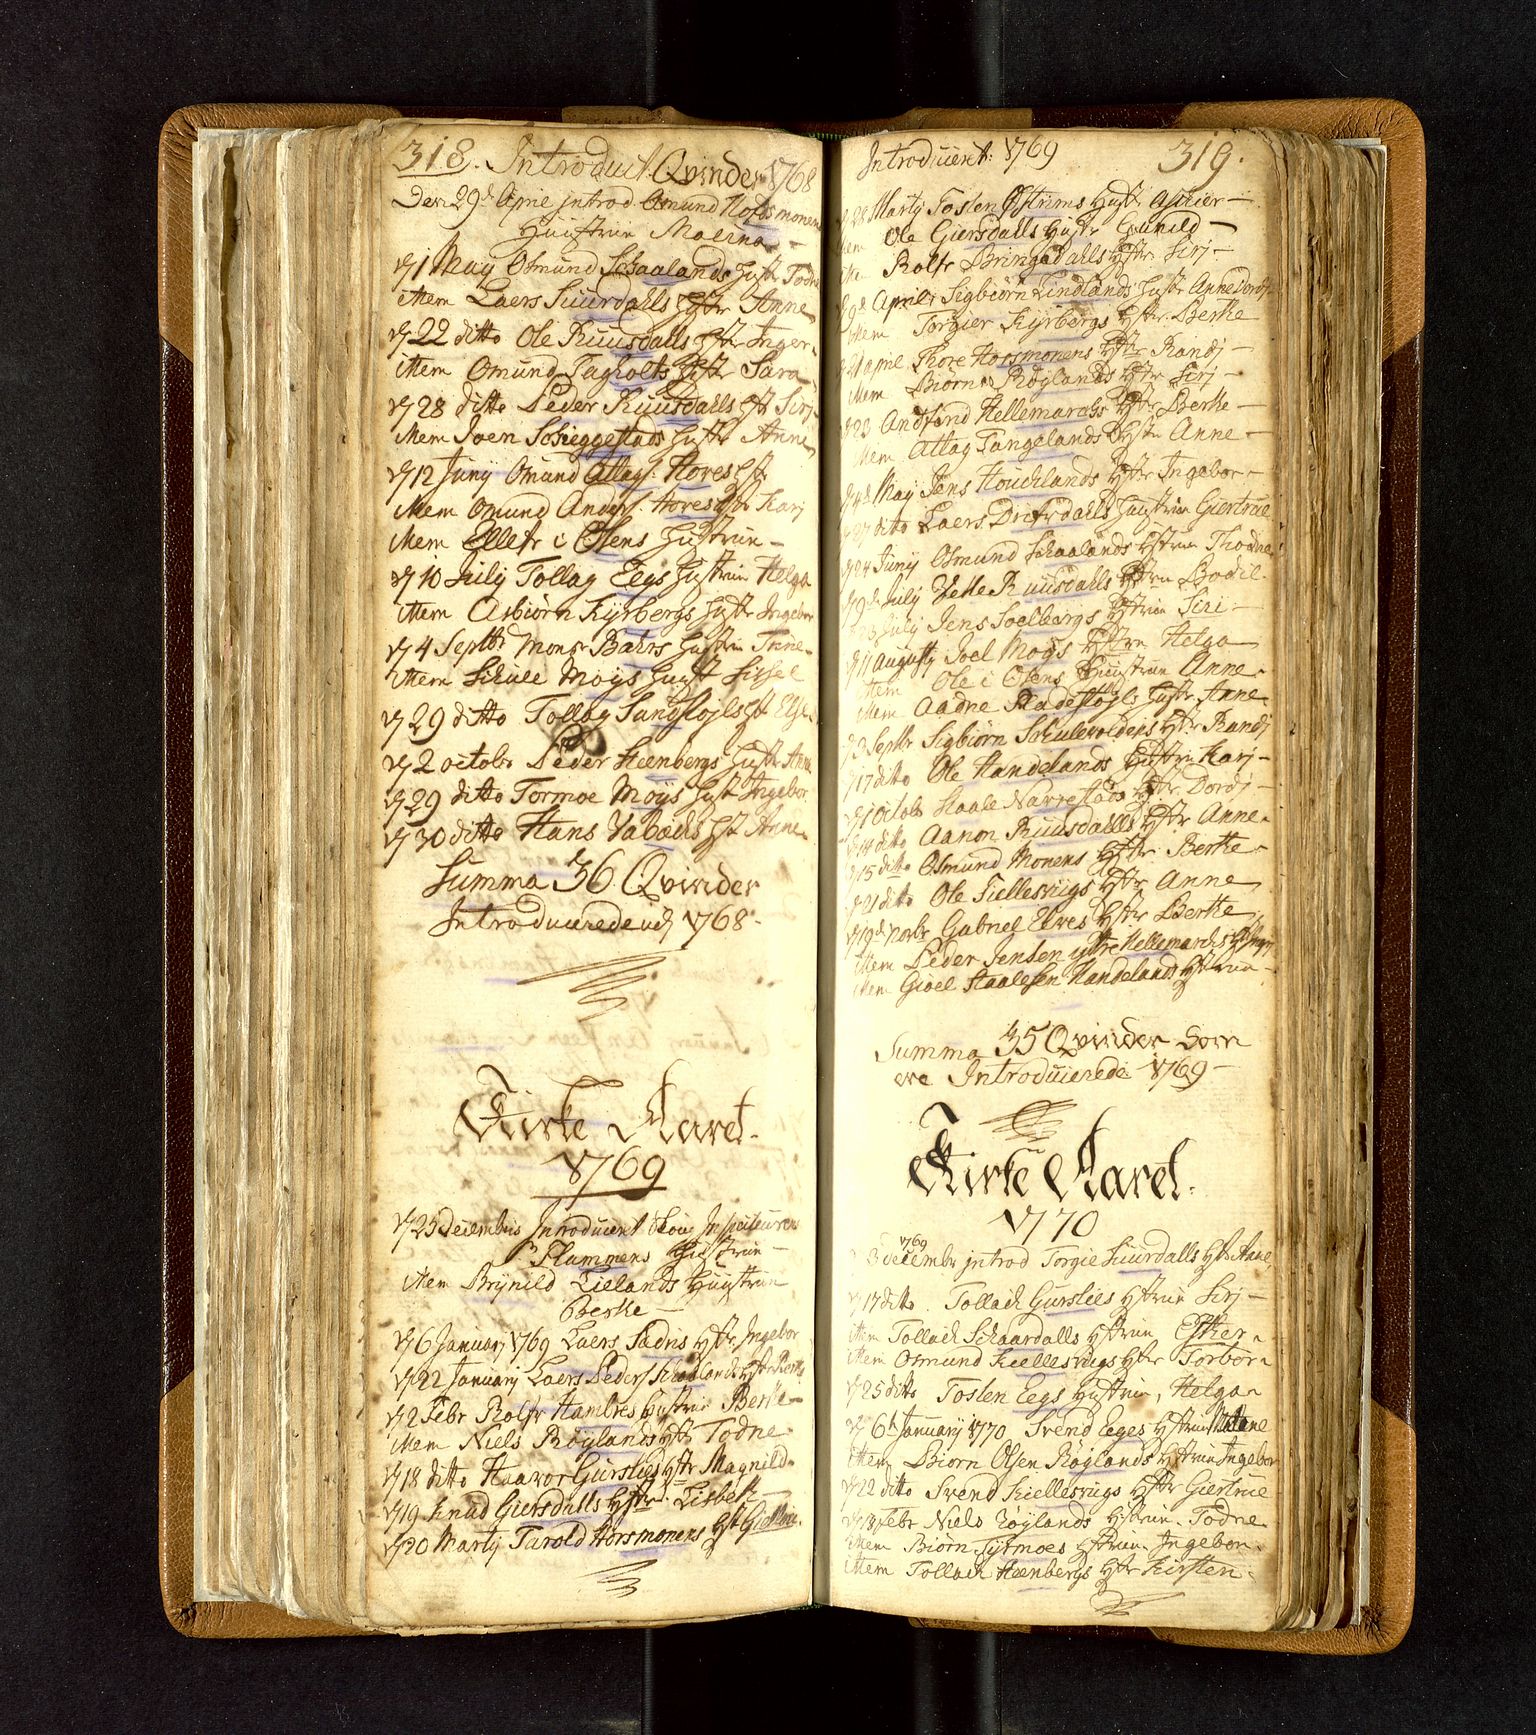 318. Introduct. Qvinder 1768
Den 29d April introd Omund Horsmonens
Huustrue Malena
17 1 Maij Osmund Schaalands Hustr Todne
item Laers Suurdahls Hstr Anne
17 22 ditto Ole Ruusdalls Hstr Inger
item Omund Fugholts Hstr Sara
17 28 ditto Peder Ruusdahls Hst Sirj
item Joen Schieggestads Hustr Anne
17 12 Junij Omund Attags. Hores Hst
item Omund Anders. Hores Hstr Karj
item Ellef i Osens Hustrue
17 10 Julij Tollag Eegs Hustrue Helga
item Asbiörn Kyrbergs Hustr Ingebor
17 4 Septbr Monsr Bahrs Hustrue Trine
item Schule Moijs Hust Sissel
17 29 ditto Tollag Sandsloijls Hst Else
17 2 octobr Peder Steenbergs Hustr Anne
17 29 ditto Tormoe Moijs Hust Ingebor
17 30 ditto Hans Vabachs Hst Anne
Summa 36 Qvinder
Introduceredeis 1768
Kirke Aaret
1769
17 25 Decembris Introduciert Skoug Inspecteurens
Sr Flummens Hustrue
item Brynild Lielands Huustrue
Berthe
17 6 Januarj 1769 Laers Sadris Hstr Ingebor
17 22 Januarij Laers Peders Schaalands Hstr Berthe
17 2 Febr Rolfr Hambres Hustrue Berthe
item Niels Röijlands Hstr Todne
17 18 ditto Haavor Gursties Hstr Magnild
17 19 Knud Giersdalls Hstr Lisbeth
17 20 Martij Tarold Horsmonens Hst Giertrue
Introduciert: 1769 319.
28 Martij Tosten Ostrims Hust Asthier
item Ole Giersdalls Hustr Gunild
item Rolfr Bringsdahls Hstr Sirj
9d April Sigbiörn Lindlands Hustr Anne Dordj
item Torgier Kijrbergs Hstr Berthe
21 april Thore Horsmonens Hstr Randj
item Biörn Röijlands Hstr Sirj
23 Andfind Hellemarchs Hstr Berthe
item Attag Tangelands Hstr Anne
4d Maij Jens Houchlands Hstr Ingebor
27 ditto Laers Drifsdahls Hustrue Giertrue
24 Junij Osmund Schaalands Hstrue Thodne
9d Julij Vetle Ruusdahls Hstrue Bodil
23 Julij Jens Soelbergs Hstrue Siri
17 11 augustj Joel Moijs Hstrue Helga
item Ole i Osens Huustrue Anne
item Aadne Stadesloijls Hustr Anne
3 Septbr Sigbiörn Schulevoldens Hstr Randj
17 17 ditto Ole Handelands Hustrue Karj
17 1 Octobr Staale Narrestads Hstr Dordj
17 14 ditto Aanon Ruusdahls Hstr Anne
17 15 ditto Osmund Monens Hstr Berthe
17 21 ditto Ole Tiellesviigs Hstr Anne
17 19d novbr Gabriel Elves Hstr Berthe
item Peder Jensen ydtre Hellemarchs Hst
item Gioel Staalesen Handelands Hstrue
Summa 35 Qvinder Som
ere Introducerede 1769
Kirke Aaret.
1770
1769
3 decembr introd Torgie Suurdalls Hst Anne
17 17 ditto Tollach Gursties Hstrue Sirj
item Tollach Schaardalls Hstrue Esther
item Osmund Kiellesviigs Hstr Torbor
17 25 ditto Tosten Eegs Hustrue, Helga
17 6d Januarij 1770 Svend Eeges Hstrue Malene
item Biorn Olsen Röijlands Hstrue Ingebor
17 22 ditto Svend Kiellesviigs Hstr Giertrue
17 18 Febr Niels Röijlands Hstrue Todne
item Biörn Tytmoes Hstrue. Ingebor
item Tollach Steenbergs Hstr Kirsten